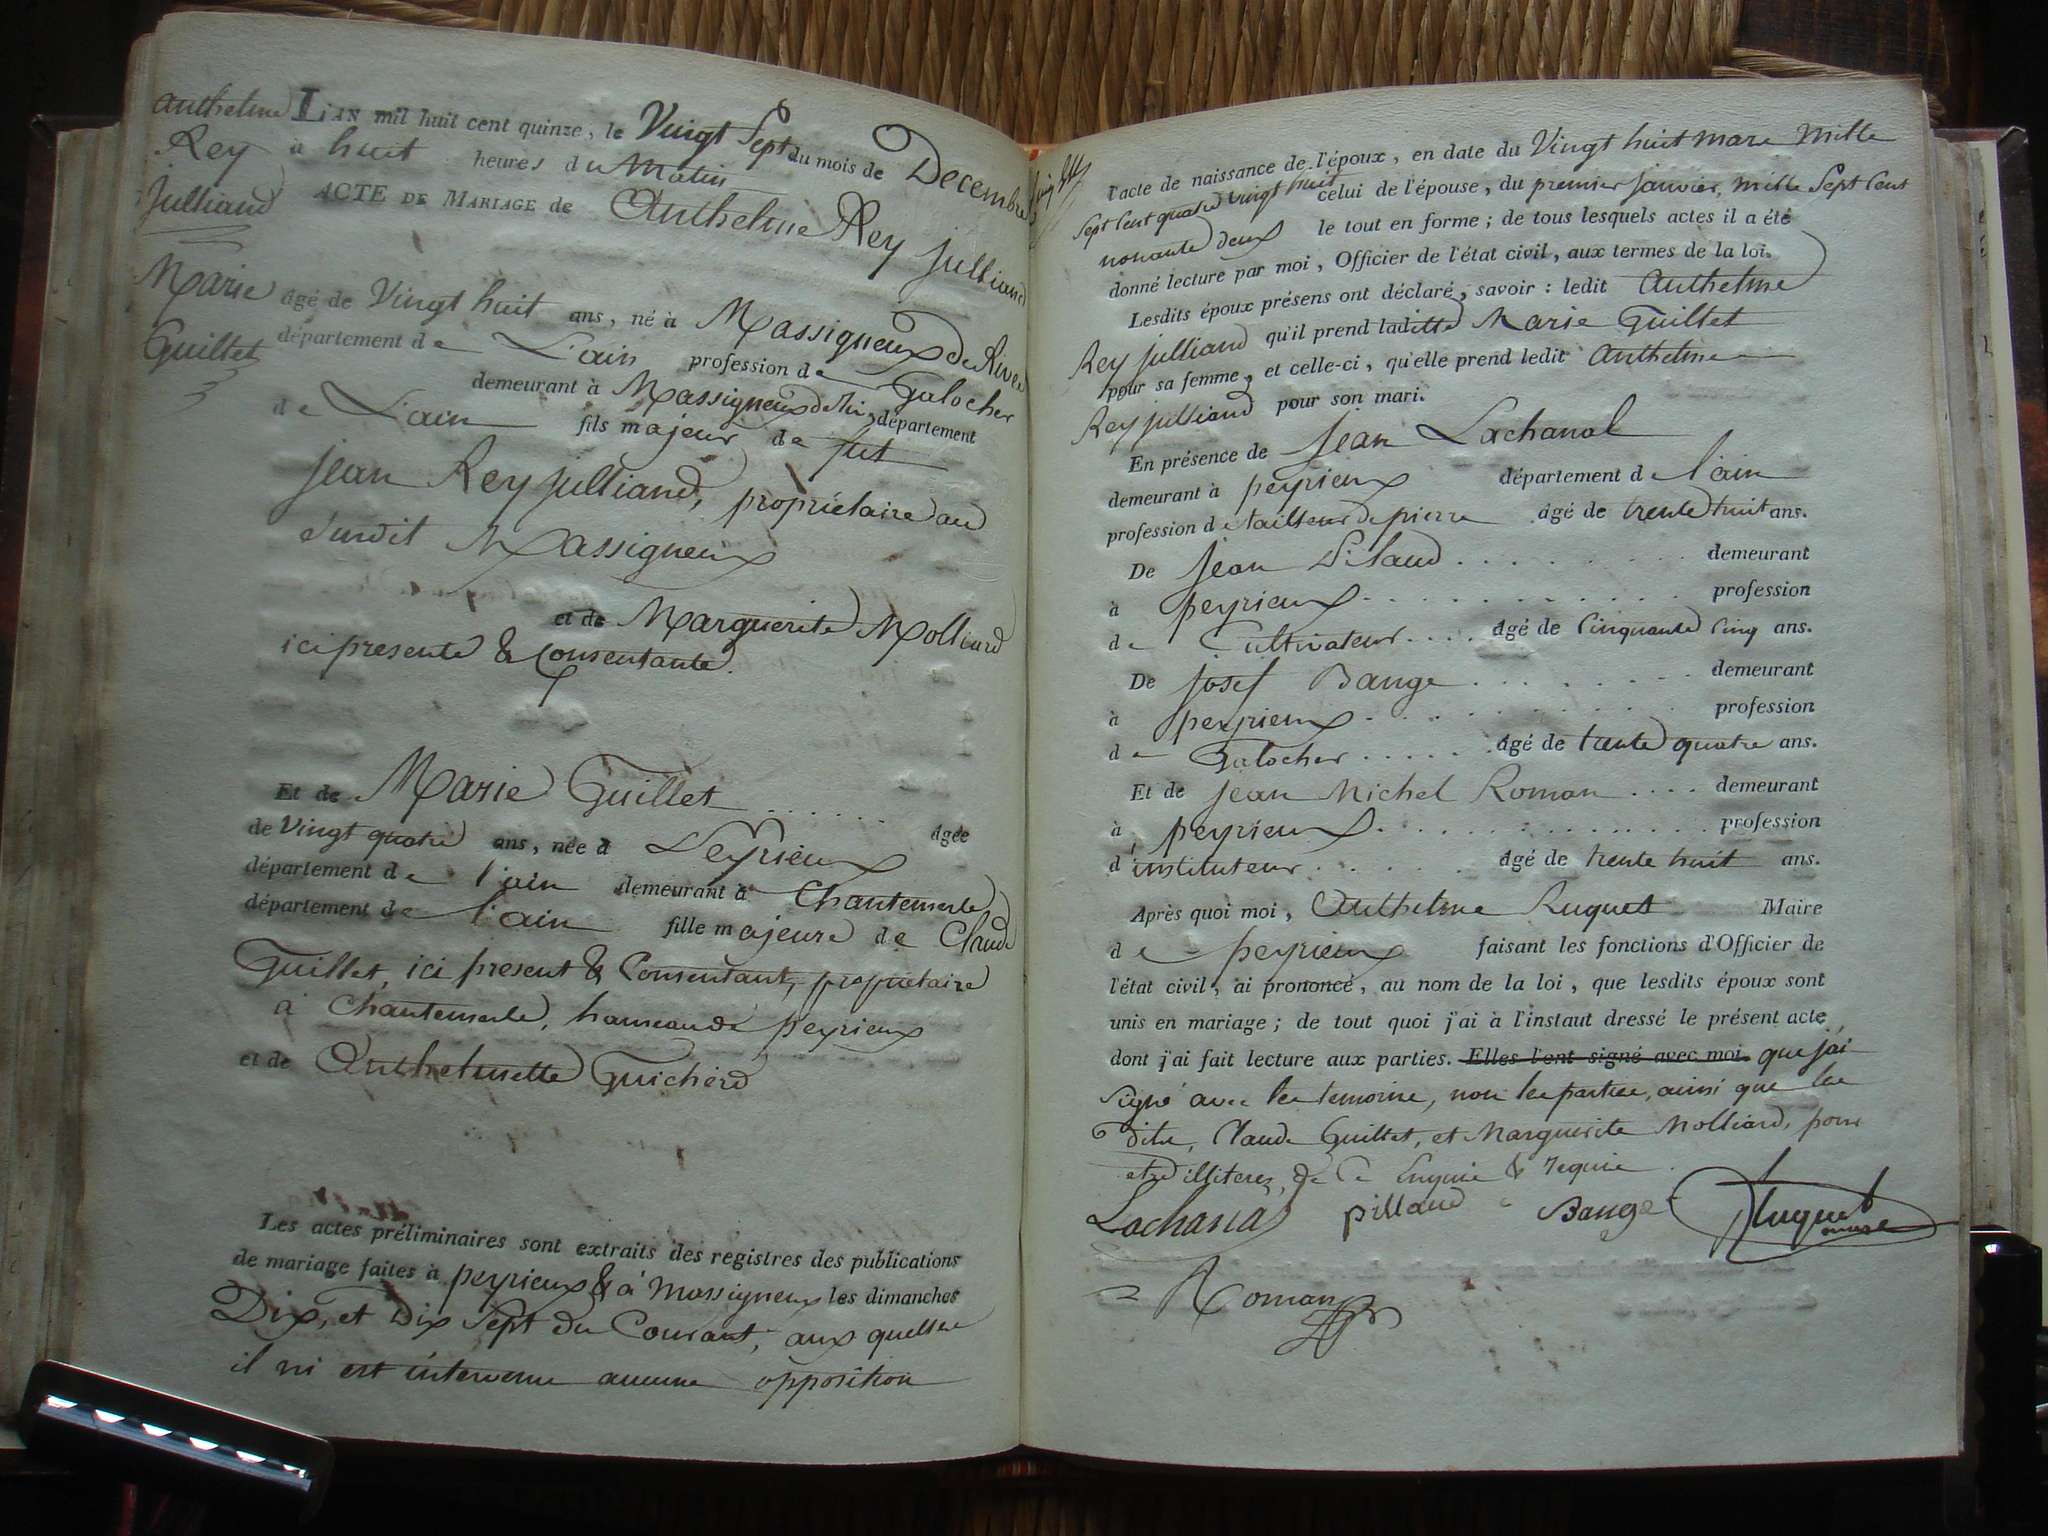 Anthelme
Rey
Julliand
Marie
Guillet
L'AN mil huit cent quinze, le Vingt Sept du mois de Decembre
à huit heures du Matin
ACTE DE MARIAGE de Anthelme Rey Julliand
âgé de Vingt huit ans, né à Massigneux De Rives
département de L'ain profession de Galocher
demeurant à Massigneux de Ri. département
de L'ain fils majeur de fut
Jean Rey Julliand, propriétaire au
Surdit Massigneux
et de Marguerite Molliard
ici presente & Consentante.
Et de Marie Guillet . . . . . . âgée
de Vingt quatre ans, née à Peyrieux
département de l'ain demeurant à Chantemerle
département de l'ain fille majeure de Claude
Guillet, ici present & Consentant, propriétaire
à Chantemerle, hameau de peyrieux
et de Anthelmette Guicherd
Les actes préliminaires sont extraits des registres des publications
de mariage faites à peyrieux & à Massigneux les dimanches
Dix, et Dix Sept du Courant, aux quelles
il ni est intervenu aucune opposition
l'acte de naissance de l'époux, en date du Vingt huit mars mille
Sept Cent quatre vingt huit celui de l'épouse, du premier Janvier, mille Sept Cent
nonante deux le tout en forme; de tous lesquels actes il a été
donné lecture par moi, Officier de l'état civil, aux termes de la loi.
Lesdits époux présens ont déclaré, savoir : ledit Anthelme
Rey Julliand qu'il prend laditte Marie Guillet
pour sa femme, et celle-ci, qu'elle prend ledit Anthelme
Rey Julliand pour son mari.
En présence de Jean Lachanal
demeurant à peyrieux département de l'ain
profession de tailleur de pierre âgé de trente huit ans.
De Jean Pilaud . . . . . . demeurant
à peyrieux . . . . . . profession
de Cultivateur . . . . âgé de Cinquante Cinq ans.
De Josef Bange . . . . . . demeurant
à peyrieux . . . . . . profession
de Galocher . . . . . âgé de trente quatre ans.
Et de Jean Michel Roman . . . . demeurant
à peyrieux . . . . . . profession
d'instituteur . . . . . . âgé de trente huit ans.
Après quoi moi, Anthelme Ruguet Maire
de peyrieux faisant les fonctions d'Officier de
l'état civil, ai prononcé, au nom de la loi, que lesdits époux sont
unis en mariage; de tout quoi j'ai à l'instant dressé le présent acte
dont j'ai fait lecture aux parties. Elles l'ont signé avec moi. que j'ai
Signé avec les temoins, non les parties, ainsi que les
dits, Claude Guillet, et Marguerite Molliard, pour
etre illiterés, de ce Enquis & requis.
Lachanal pillaud Bange Ruguet maire
Roman